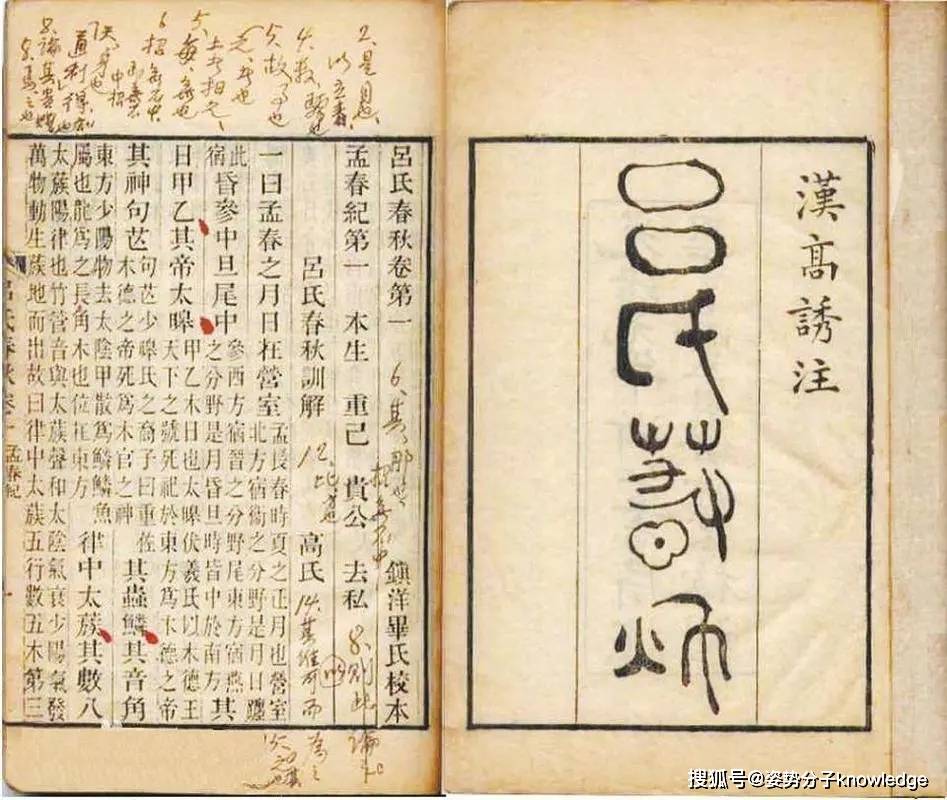 漢高誘注
呂氏春秋
呂氏春秋卷第一 鎮洋畢氏校本
孟春紀第一 本生 重己 貴公 去私
呂氏春秋訓解 高氏
一曰孟春之月日在營室 孟長春時夏之正月也營室
北方宿衛之分野是月日躔
此
宿 昏參中旦尾中 參西方宿晉之分野尾東方宿燕
之分野是月昏旦時皆中於南方 其
日甲乙其帝太皞 甲乙木日也太皞伏羲氏以木德王
天下之號死祀於東方為木德之帝
其神句芒 句芒少皞氏之裔子曰重佐
木德之帝死為木官之神 其蟲鱗其音角
東方少陽物去太陰甲散為鱗鱗魚
屬也龍為之長角木也位在東方 律中太蔟其數八
太蔟陽律也竹管音與太蔟聲和太陰氣衰少陽氣發
萬物動生蔟地而出故曰律中太蔟五行數五木第三
搜狐号@姿势分子knowledge